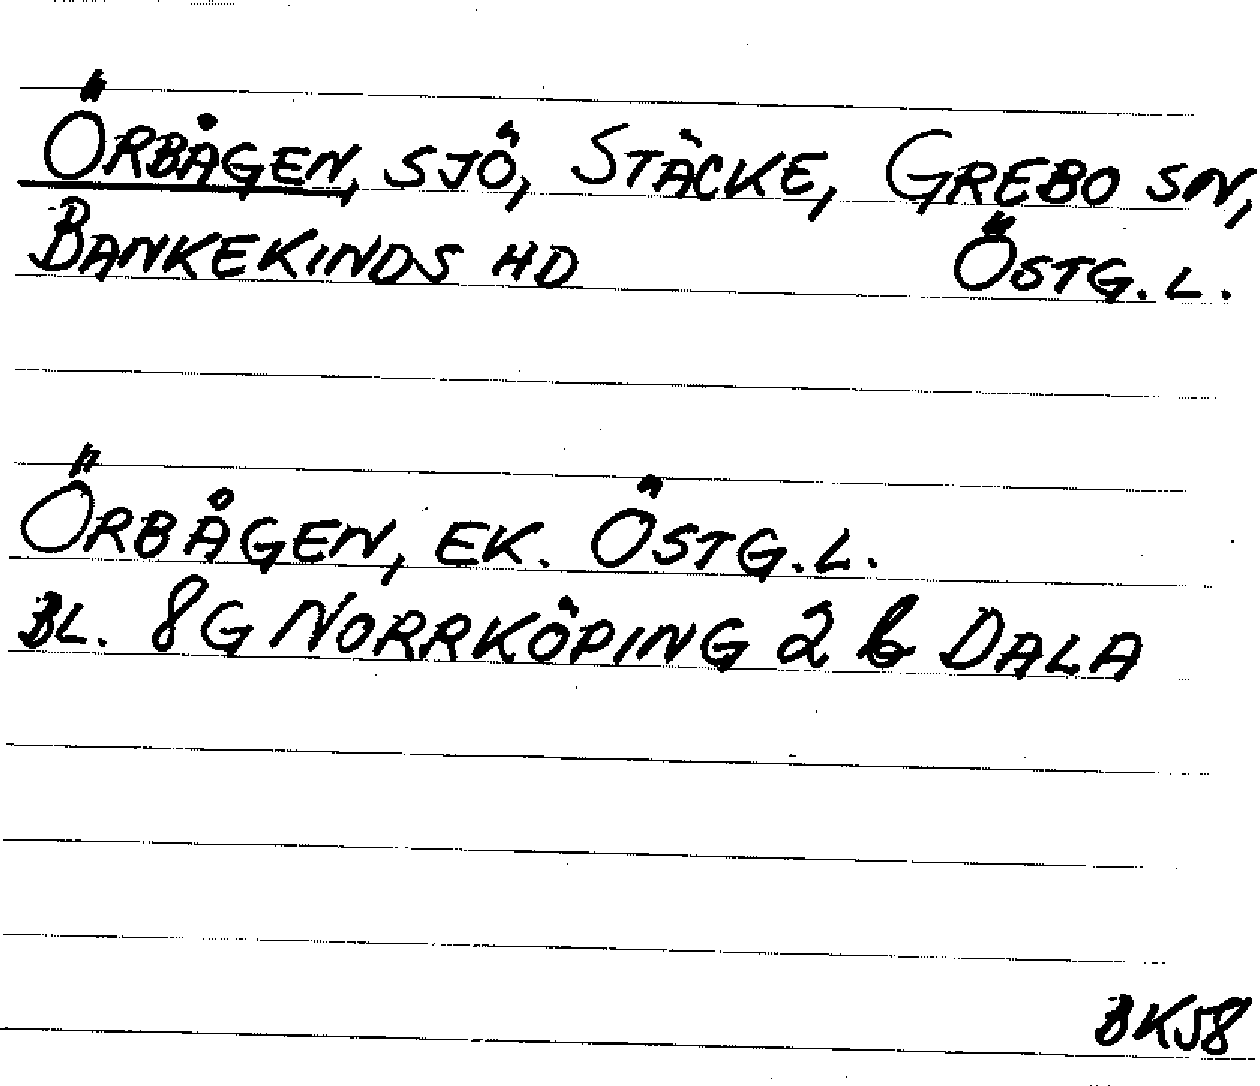 ÖRBÅGEN, SJÖ, STÄCKE, GREBO SN,
BANKEKINDS HD ÖSTG.L.
ÖRBÅGEN, EK. ÖSTG.L.
BL. 8G NORRKÖPING 2 b DALA
BKJ8